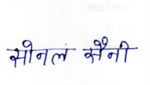 सोनल सैनी